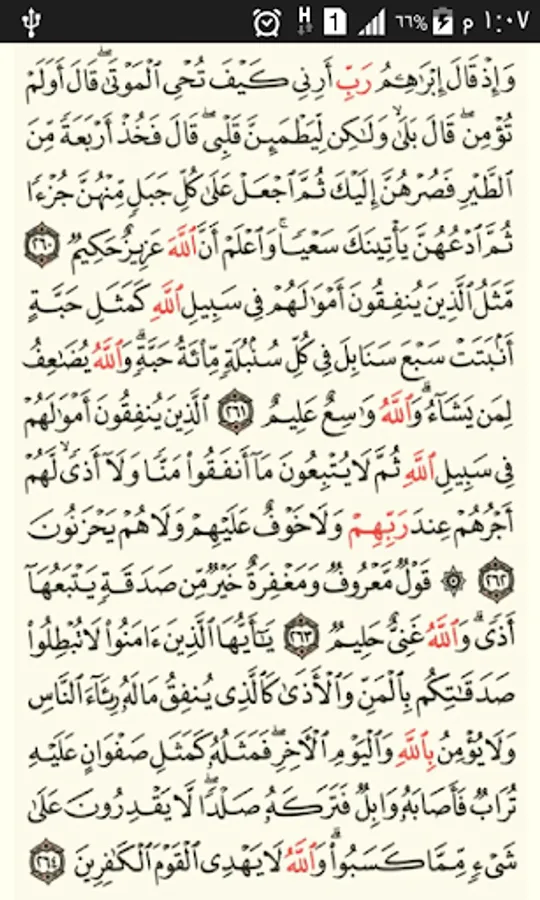 ١:٠٧ م ٦٦% 1 H
وَإِذۡ قَالَ إِبۡرَٰهِـۧمُ رَبِّ أَرِنِي كَيۡفَ تُحۡيِ ٱلۡمَوۡتَىٰۖ قَالَ أَوَلَمۡ
تُؤۡمِنۖ قَالَ بَلَىٰ وَلَٰكِن لِّيَطۡمَئِنَّ قَلۡبِيۖ قَالَ فَخُذۡ أَرۡبَعَةٗ مِّنَ
ٱلطَّيۡرِ فَصُرۡهُنَّ إِلَيۡكَ ثُمَّ ٱجۡعَلۡ عَلَىٰ كُلِّ جَبَلٖ مِّنۡهُنَّ جُزۡءٗا
ثُمَّ ٱدۡعُهُنَّ يَأۡتِينَكَ سَعۡيٗاۚ وَٱعۡلَمۡ أَنَّ ٱللَّهَ عَزِيزٌ حَكِيمٞ ٢٦٠
مَّثَلُ ٱلَّذِينَ يُنفِقُونَ أَمۡوَٰلَهُمۡ فِي سَبِيلِ ٱللَّهِ كَمَثَلِ حَبَّةٍ
أَنۢبَتَتۡ سَبۡعَ سَنَابِلَ فِي كُلِّ سُنۢبُلَةٖ مِّاْئَةُ حَبَّةٖۗ وَٱللَّهُ يُضَٰعِفُ
لِمَن يَشَآءُۗ وَٱللَّهُ وَٰسِعٌ عَلِيمٌ ٢٦١ ٱلَّذِينَ يُنفِقُونَ أَمۡوَٰلَهُمۡ
فِي سَبِيلِ ٱللَّهِ ثُمَّ لَا يُتۡبِعُونَ مَآ أَنفَقُواْ مَنّٗا وَلَآ أَذٗى لَّهُمۡ
أَجۡرُهُمۡ عِندَ رَبِّهِمۡ وَلَا خَوۡفٌ عَلَيۡهِمۡ وَلَا هُمۡ يَحۡزَنُونَ
٢٦٢ ۞ قَوۡلٞ مَّعۡرُوفٞ وَمَغۡفِرَةٌ خَيۡرٞ مِّن صَدَقَةٖ يَتۡبَعُهَآ
أَذٗىۗ وَٱللَّهُ غَنِيٌّ حَلِيمٞ ٢٦٣ يَٰٓأَيُّهَا ٱلَّذِينَ ءَامَنُواْ لَا تُبۡطِلُواْ
صَدَقَٰتِكُم بِٱلۡمَنِّ وَٱلۡأَذَىٰ كَٱلَّذِي يُنفِقُ مَالَهُۥ رِئَآءَ ٱلنَّاسِ
وَلَا يُؤۡمِنُ بِٱللَّهِ وَٱلۡيَوۡمِ ٱلۡأٓخِرِۖ فَمَثَلُهُۥ كَمَثَلِ صَفۡوَانٍ عَلَيۡهِ
تُرَابٞ فَأَصَابَهُۥ وَابِلٞ فَتَرَكَهُۥ صَلۡدٗاۖ لَّا يَقۡدِرُونَ عَلَىٰ
شَيۡءٖ مِّمَّا كَسَبُواْۗ وَٱللَّهُ لَا يَهۡدِي ٱلۡقَوۡمَ ٱلۡكَٰفِرِينَ ٢٦٤